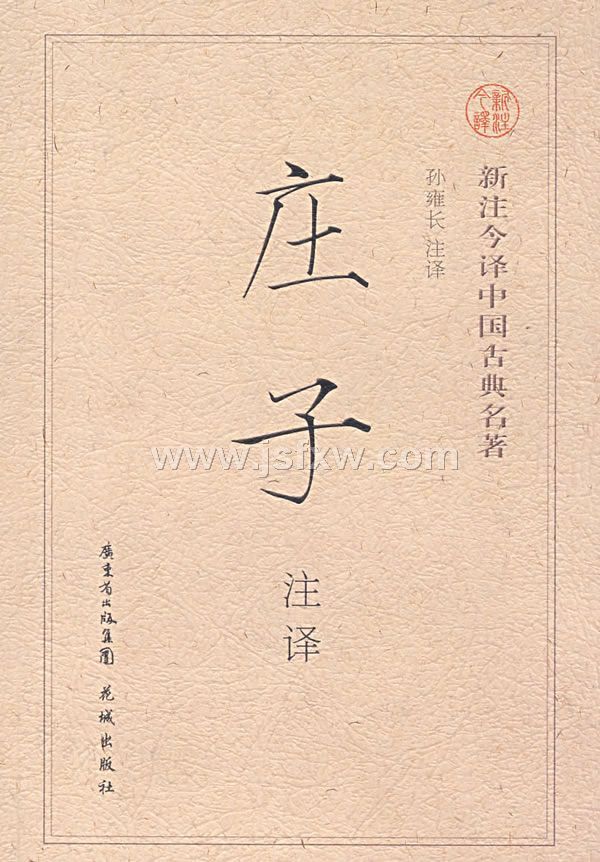 新注今譯
新注今译中国古典名著
孙雍长 注译
庄子
注译
www.jsfxw.com
廣東省出版集團 花城出版社